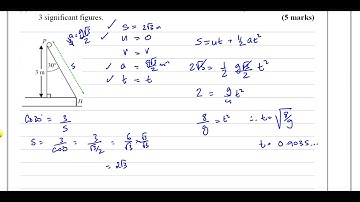 3 significant figures.
(5 marks)
a = g√3/2
P
s
30°
3 m
B
s = 2√3 m
u = 0
v = v
a = g√3/2 ms⁻²
t = t
s = ut + ½at²
2√3 = 1/2 g√3/2 t²
2 = g/4 t²
8/g = t² ∴ t = √8/g
t = 0.9035...
Cos30 = 3/s
s = 3/cos30 = 3/√3/2 = 6/√3 × √3/√3
= 2√3